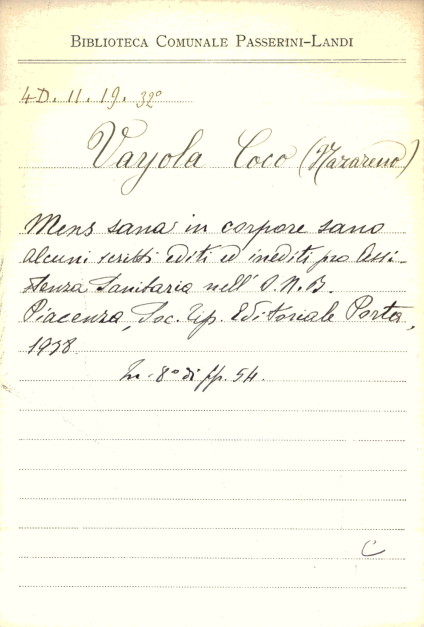 BIBLIOTECA COMUNALE PASSERINI-LANDI
4D. 11. 19. 32°
Vayola Coco (Nazareno)
Mens sana in corpore sano
Alcuni scritti editi ed inediti pro Assi-
stenza Sanitaria nell' O.N.B.
Piacenza, Soc. Tip. Editoriale Porta,
1938
In-8° di pp. 54.
C